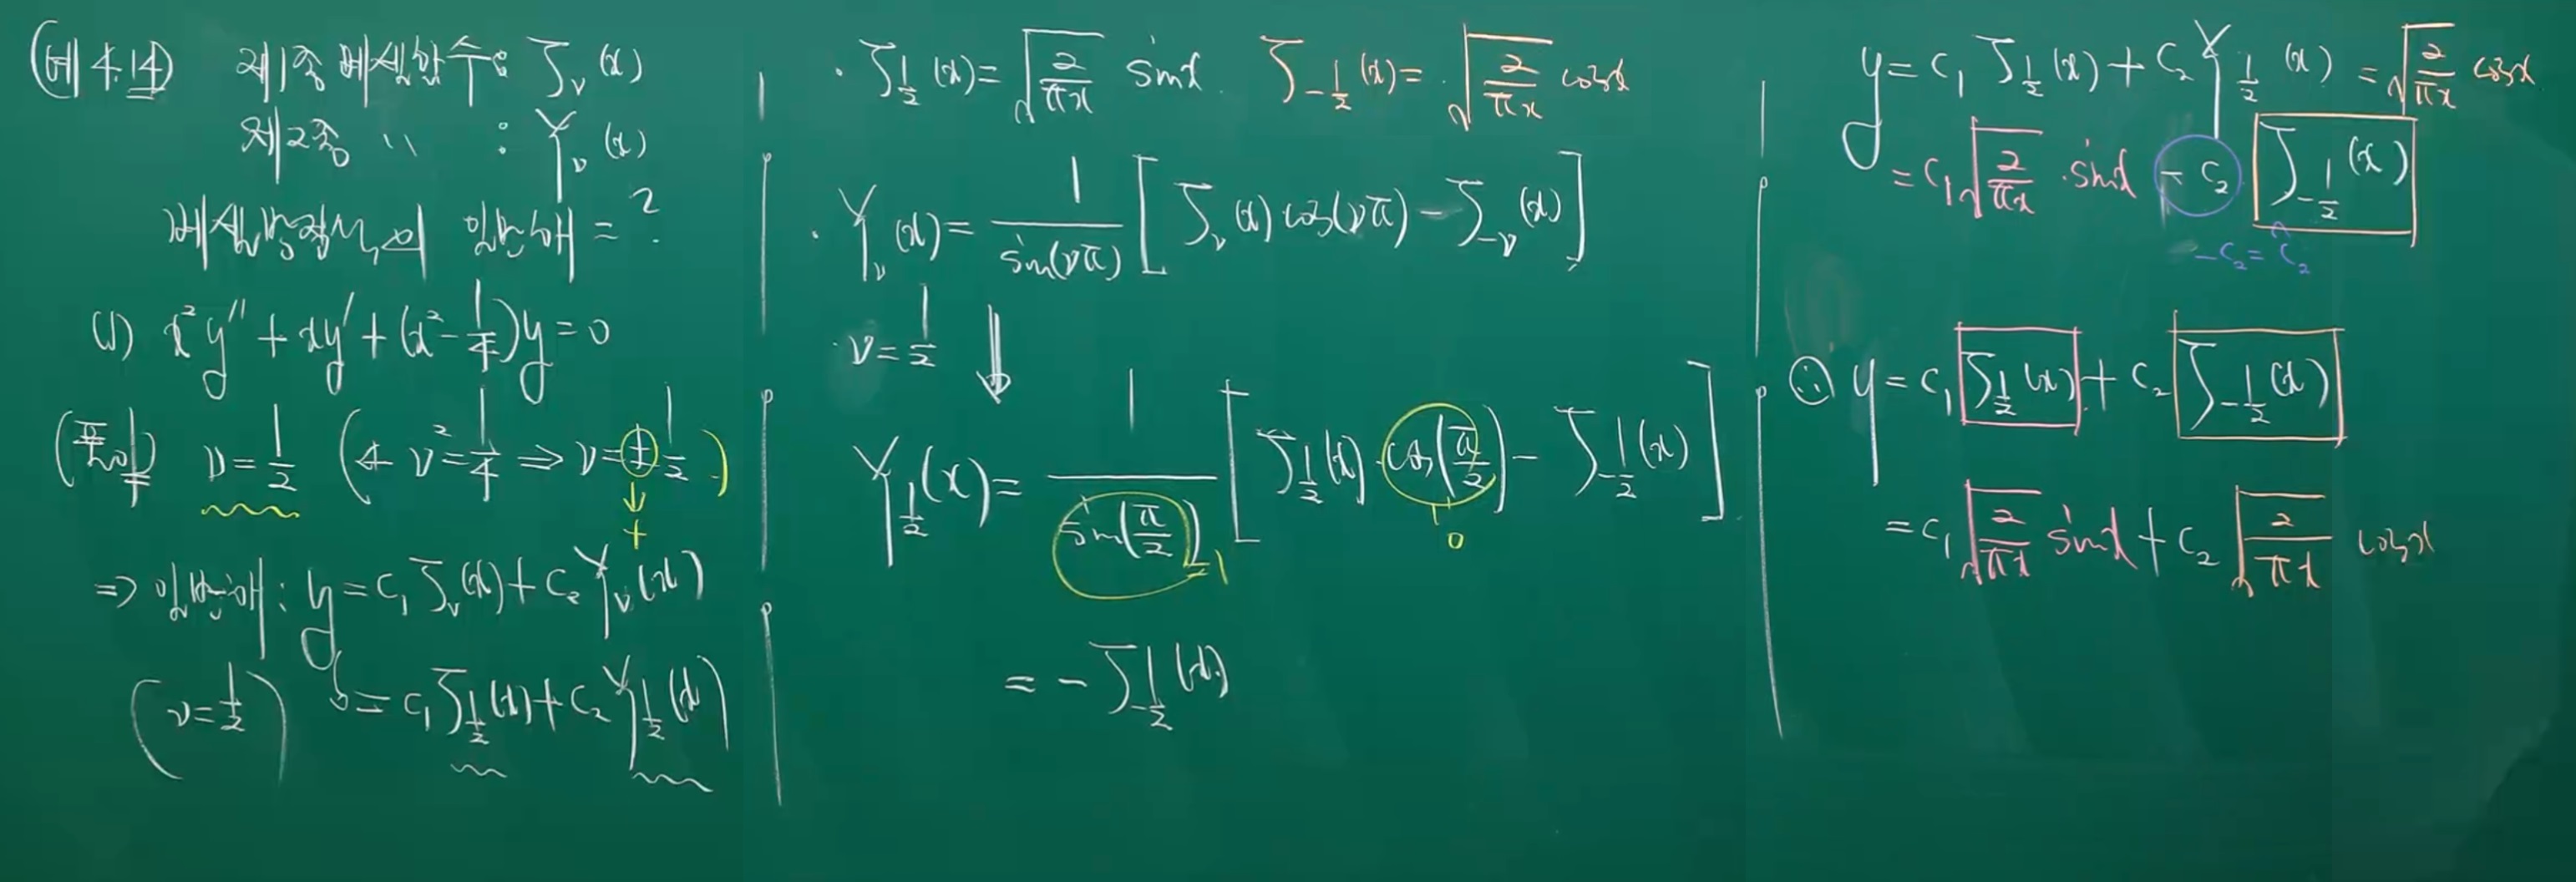 (예 4.14) 제1종 베셀함수: J_ν(x)
제2종 〃 : Y_ν(x)
베셀방정식의 일반해 = ?
(1) x²y″ + xy′ + (x² - 1/4)y = 0
(풀이) ν = 1/2 (← ν² = 1/4 ⇒ ν = ± 1/2)
↓
+
⇒ 일반해: y = c₁ J_ν(x) + c₂ Y_ν(x)
(ν = 1/2) ↳ = c₁ J_{1/2}(x) + c₂ Y_{1/2}(x)
· J_{1/2}(x) = √(2/πx) sin x J_{-1/2}(x) = √(2/πx) cos x
· Y_ν(x) = 1/sin(νπ) [ J_ν(x) cos(νπ) - J_{-ν}(x) ]
· ν = 1/2 ⇓
Y_{1/2}(x) = 1/sin(π/2) [ J_{1/2}(x) · cos(π/2) - J_{-1/2}(x) ]
=1 0
= - J_{-1/2}(x)
y = c₁ J_{1/2}(x) + c₂ Y_{1/2}(x) = √(2/πx) cos x
= c₁ √(2/πx) · sin x - c₂ J_{-1/2}(x)
-c₂ = ĉ₂
∴ y = c₁ J_{1/2}(x) + c₂ J_{-1/2}(x)
= c₁ √(2/πx) sin x + c₂ √(2/πx) cos x